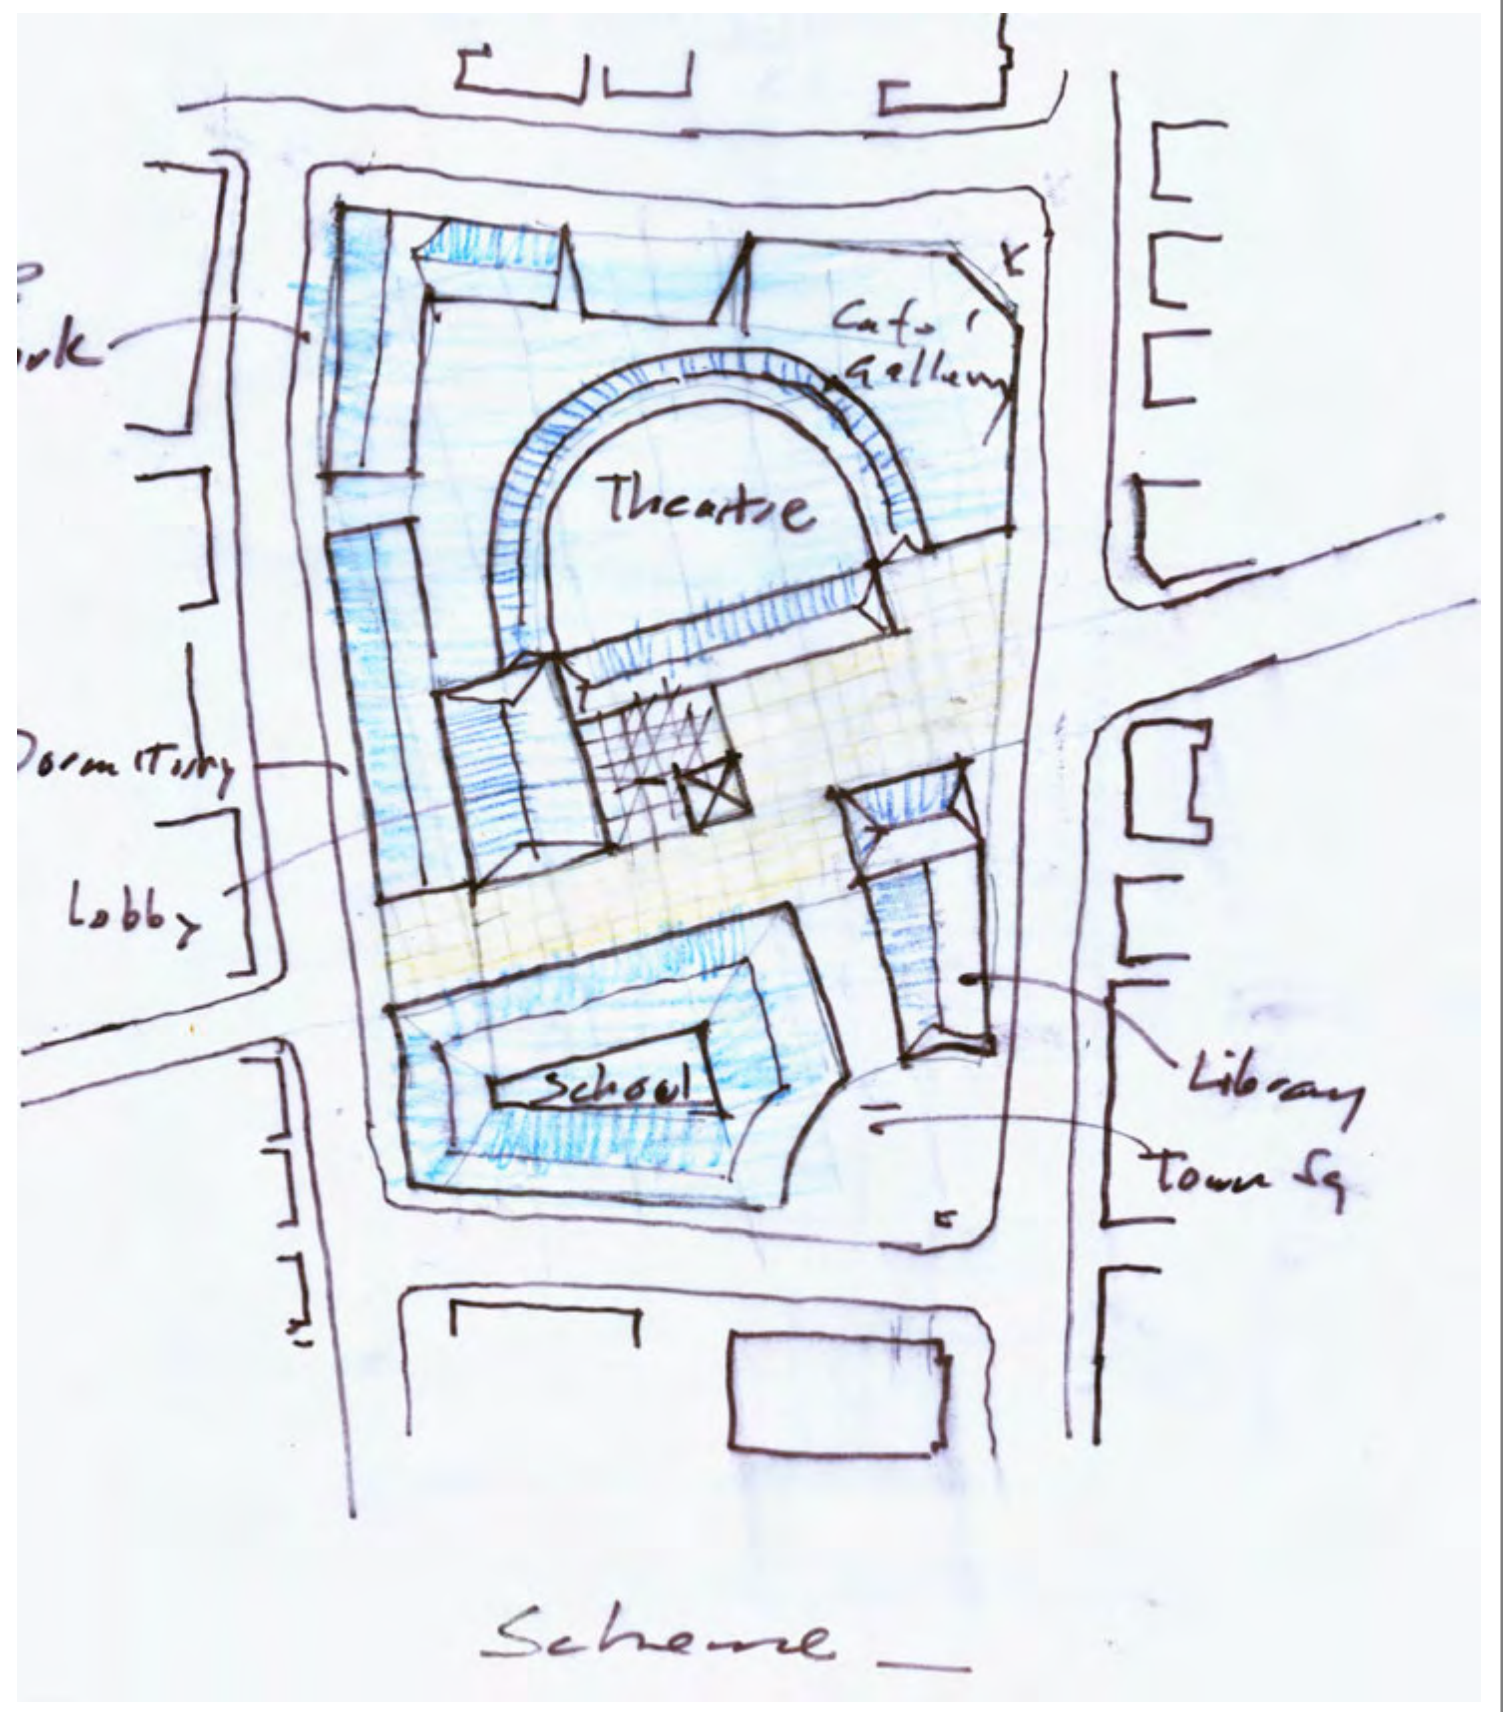 Cafe /
Gallery
Theatre
Dormitory
Lobby
School
Library
Town Sq
Scheme _